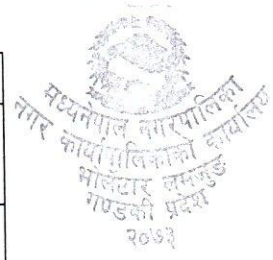 मध्यनेपाल नगरपालिका
नगर कार्यपालिकाको कार्यालय
भोलेटार लमजुङ
गण्डकी प्रदेश
२०७३